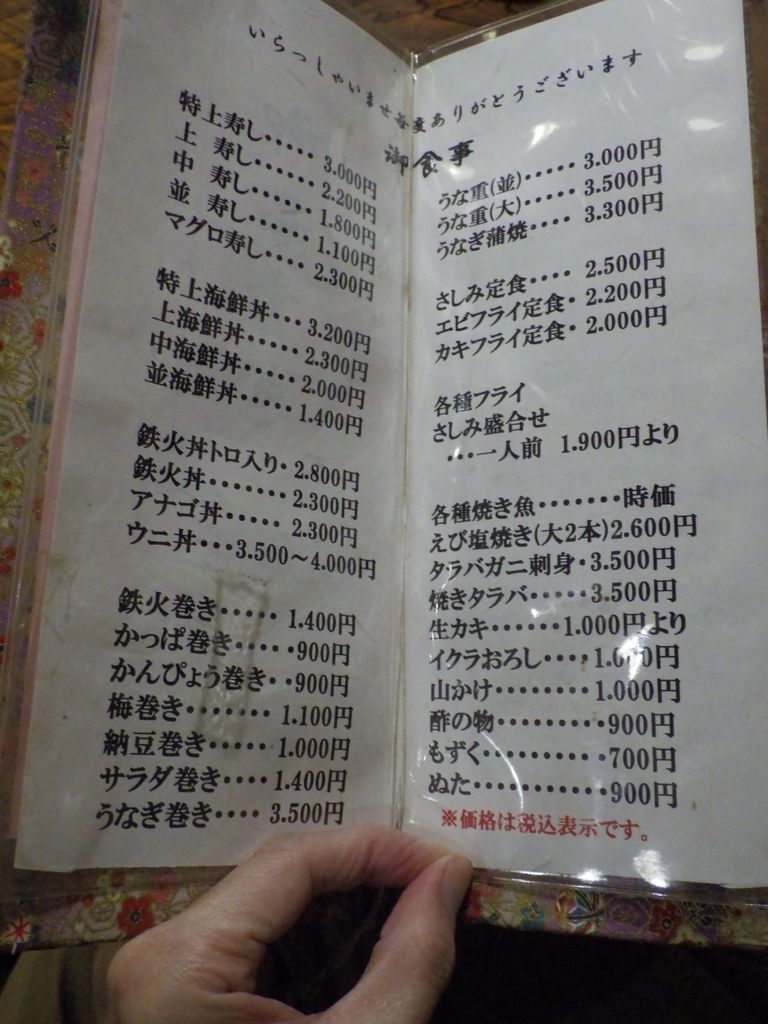 いらっしゃいませ毎度ありがとうございます
御食事
特上寿し・・・・・3.000円
上　寿し・・・・・・2.200円
中　寿し・・・・・・1.800円
並　寿し・・・・・・1.100円
マグロ寿し・・・・2.300円
特上海鮮丼・・・3.200円
上海鮮丼・・・・・2.300円
中海鮮丼・・・・・2.000円
並海鮮丼・・・・・1.400円
鉄火丼トロ入り・2.800円
鉄火丼・・・・・・・2.300円
アナゴ丼・・・・・2.300円
ウニ丼・・・3.500〜4.000円
鉄火巻き・・・・・1.400円
かっぱ巻き・・・・・900円
かんぴょう巻き・・900円
梅巻き・・・・・・・1.100円
納豆巻き・・・・・1.000円
サラダ巻き・・・・1.400円
うなぎ巻き・・・・3.500円
うな重(並)・・・・・3.000円
うな重(大)・・・・3.500円
うなぎ蒲焼・・・・3.300円
さしみ定食・・・・2.500円
エビフライ定食・2.200円
カキフライ定食・2.000円
各種フライ
さしみ盛合せ
・・・一人前　1.900円より
各種焼き魚・・・・・・・時価
えび塩焼き(大2本)2.600円
タラバガニ刺身・3.500円
焼きタラバ・・・・・3.500円
生カキ・・・・・・1.000円より
イクラおろし・・・・1.000円
山かけ・・・・・・・・1.000円
酢の物・・・・・・・・・900円
もずく・・・・・・・・・・700円
ぬた・・・・・・・・・・・900円
※価格は税込表示です。